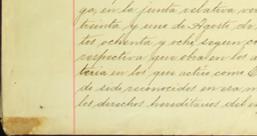 go, en la junta relativa ver
treinta y uno de Agosto de
tos ochenta y ocho, segun co
respectiva que obra en los a
toria en los que actúo como
de sido reconocidos en esa m
los derechos hereditarios del